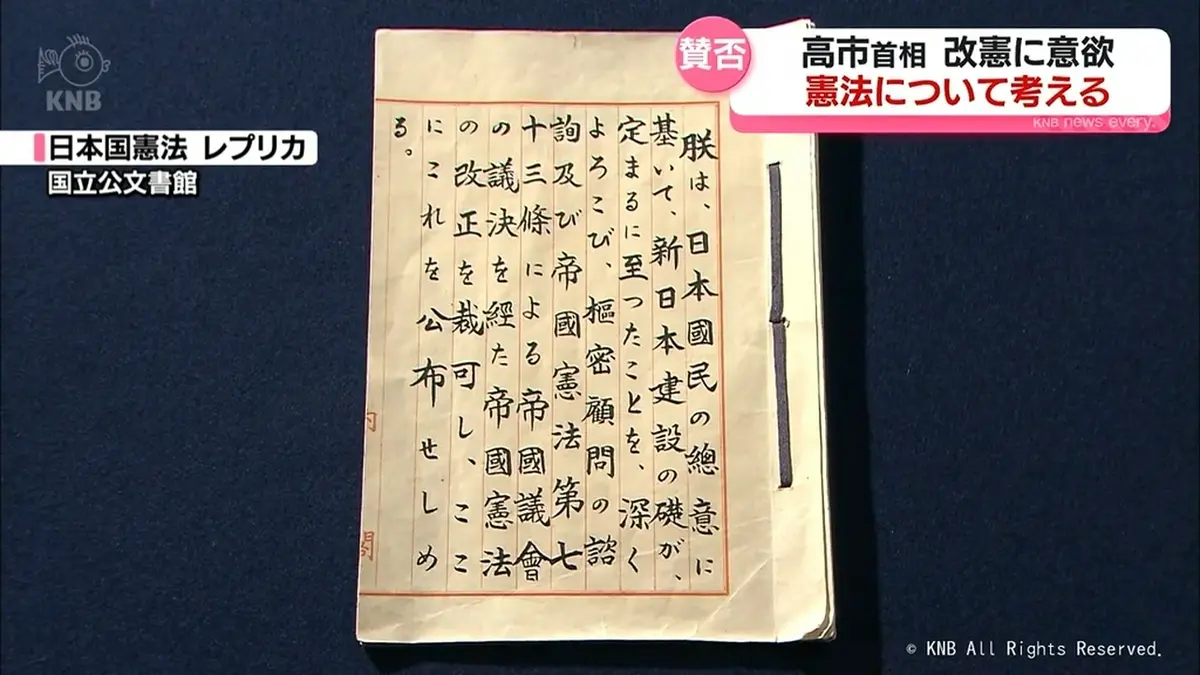 KNB
賛否
高市首相 改憲に意欲
憲法について考える
KNB news every.
日本国憲法 レプリカ
国立公文書館
朕は、日本國民の總意に
基いて、新日本建設の礎が、
定まるに至つたことを、深く
よろこび、樞密顧問の諮
詢及び帝國憲法第七
十三條による帝國議會
の議決を経た帝國憲法
の改正を裁可し、ここ
にこれを公布せしめ
る。
内
閣
© KNB All Rights Reserved.